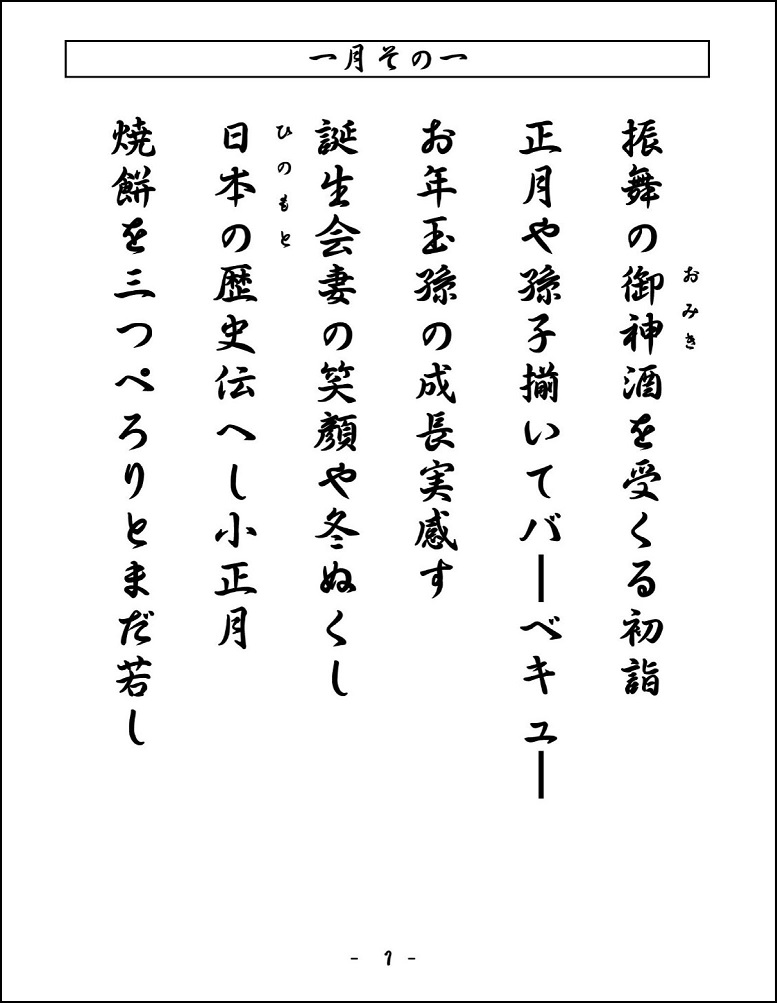 一月その一
振舞の御神酒を受くる初詣
おみき
正月や孫子揃いてバーベキュー
お年玉孫の成長実感す
誕生会妻の笑顔や冬ぬくし
日本の歴史伝へし小正月
ひのもと
焼餅を三つぺろりとまだ若し
- 1 -